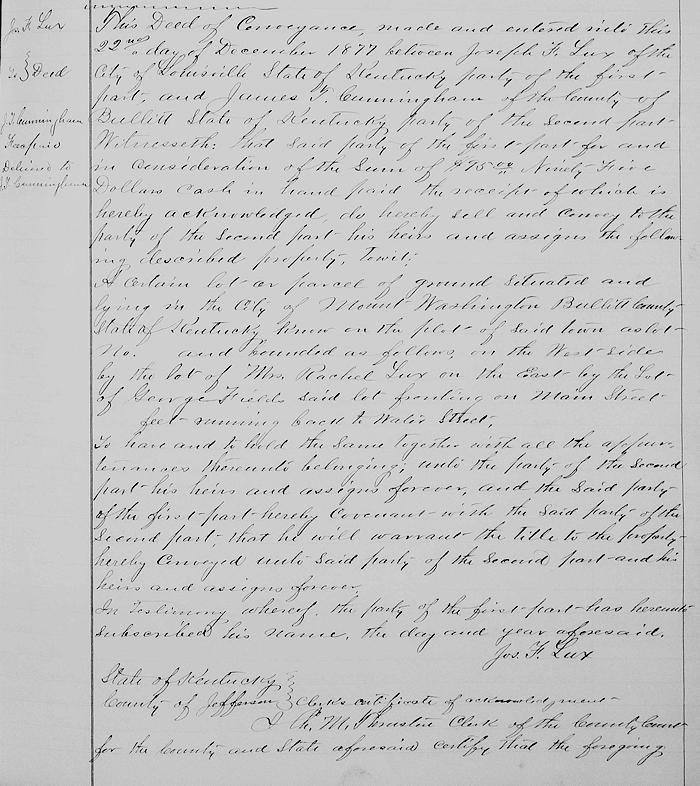 Jos. F. Lux
To } Deed
J. F. Cunningham
Delivered to
J. F. Cunningham
This Deed of Conveyance, made and entered into this
22nd day of December 1877 between Joseph F. Lux of the
City of Louisville State of Kentucky party of the first
part, and James F. Cunningham of the County of
Bullitt State of Kentucky party of the Second part
Witnesseth: that said party of the first part for and
in Consideration of the Sum of $95.00 Ninety Five
Dollars Cash in hand paid the receipt of which is
hereby acknowledged, do hereby sell and Convey to the
party of the Second part his heirs and assigns the follow-
ing described property, Towit;
A Certain lot or parcel of ground Situated and
lying in the City of Mount Washington Bullitt County
State of Kentucky Know on the plot of said town as lot
No. and bounded as follows, on the West side
by the lot of Mrs. Rachel Lux on the East by the Lot
of George Fields said lot fronting on Main Street
feet running back to Water Street,
To have and to hold the Same together with all the appur-
tenances thereunto belonging, unto the party of the Second
part his heirs and assigns forever, and the Said party
of the first part hereby Covenant with the Said party of the
Second part, that he will warrant the Title to the property
hereby Conveyed unto Said party of the Second part and his
heirs and assigns forever,
In Testimony whereof, the party of the first part has hereunto
Subscribed his name, the day and year aforesaid.
Jos. F. Lux
State of Kentucky
County of Jefferson } Clerks certificate of acknowledgment
I M. Thruston Clerk of the County Court
for the County and State aforesaid certify that the foregoing